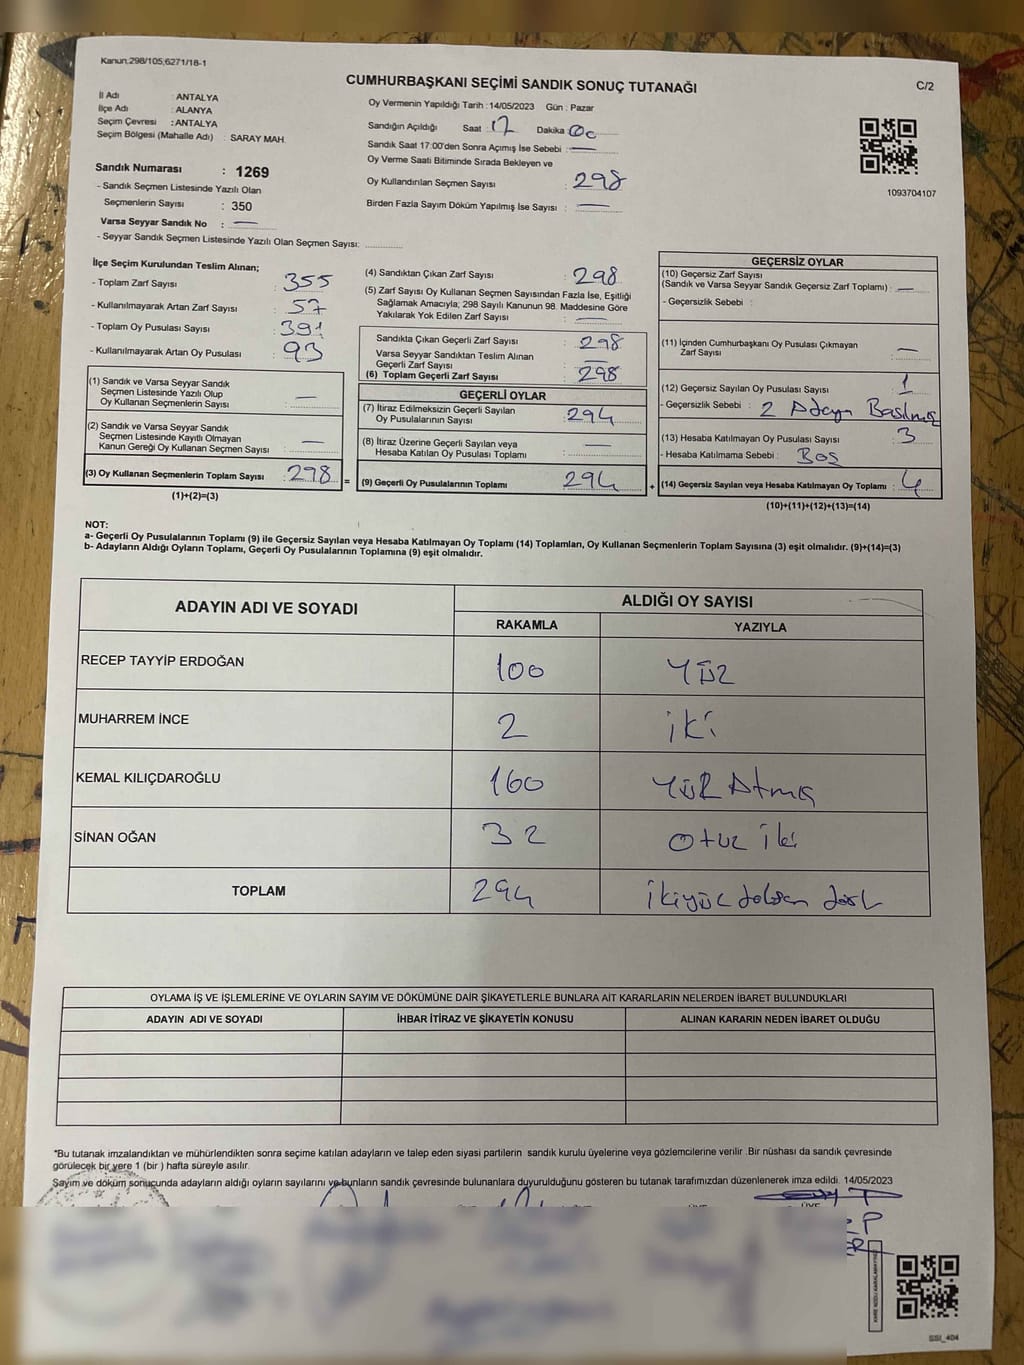 Kanun;298/105;6271/18-1
CUMHURBAŞKANI SEÇİMİ SANDIK SONUÇ TUTANAĞI
C/2
İl Adı : ANTALYA
İlçe Adı : ALANYA
Seçim Çevresi : ANTALYA
Seçim Bölgesi (Mahalle Adı) : SARAY MAH.
Oy Vermenin Yapıldığı Tarih : 14/05/2023 Gün : Pazar
Sandığın Açıldığı Saat : 17 Dakika 00
Sandık Saat 17:00'den Sonra Açımış İse Sebebi : —
Oy Verme Saati Bitiminde Sırada Bekleyen ve
Oy Kullandırılan Seçmen Sayısı : 298
Birden Fazla Sayım Döküm Yapılmış İse Sayısı : —
1093704107
Sandık Numarası : 1269
- Sandık Seçmen Listesinde Yazılı Olan
Seçmenlerin Sayısı : 350
Varsa Seyyar Sandık No : —
- Seyyar Sandık Seçmen Listesinde Yazılı Olan Seçmen Sayısı:
İlçe Seçim Kurulundan Teslim Alınan;
- Toplam Zarf Sayısı : 355
- Kullanılmayarak Artan Zarf Sayısı : 57
- Toplam Oy Pusulası Sayısı : 391
- Kullanılmayarak Artan Oy Pusulası : 93
(1) Sandık ve Varsa Seyyar Sandık
Seçmen Listesinde Yazılı Olup
Oy Kullanan Seçmenlerin Sayısı : —
(2) Sandık ve Varsa Seyyar Sandık
Seçmen Listesinde Kayıtlı Olmayan
Kanun Gereği Oy Kullanan Seçmen Sayısı : —
(3) Oy Kullanan Seçmenlerin Toplam Sayısı : 298
(1)+(2)=(3)
(4) Sandıktan Çıkan Zarf Sayısı : 298
(5) Zarf Sayısı Oy Kullanan Seçmen Sayısından Fazla İse, Eşitliği
Sağlamak Amacıyla; 298 Sayılı Kanunun 98. Maddesine Göre
Yakılarak Yok Edilen Zarf Sayısı : —
Sandıkta Çıkan Geçerli Zarf Sayısı : 298
Varsa Seyyar Sandıktan Teslim Alınan
Geçerli Zarf Sayısı : —
(6) Toplam Geçerli Zarf Sayısı : 298
GEÇERLİ OYLAR
(7) İtiraz Edilmeksizin Geçerli Sayılan
Oy Pusulalarının Sayısı : 294
(8) İtiraz Üzerine Geçerli Sayılan veya
Hesaba Katılan Oy Pusulası Toplamı : —
= (9) Geçerli Oy Pusulalarının Toplamı : 294
GEÇERSİZ OYLAR
(10) Geçersiz Zarf Sayısı
(Sandık ve Varsa Seyyar Sandık Geçersiz Zarf Toplamı) : —
- Geçersizlik Sebebi :
(11) İçinden Cumhurbaşkanı Oy Pusulası Çıkmayan
Zarf Sayısı : —
(12) Geçersiz Sayılan Oy Pusulası Sayısı : 1
- Geçersizlik Sebebi : 2 Adaya Basılmış
(13) Hesaba Katılmayan Oy Pusulası Sayısı : 3
- Hesaba Katılmama Sebebi : Boş
+ (14) Geçersiz Sayılan veya Hesaba Katılmayan Oy Toplamı : 4
(10)+(11)+(12)+(13)=(14)
NOT:
a- Geçerli Oy Pusulasının Toplamı (9) ile Geçersiz Sayılan veya Hesaba Katılmayan Oy Toplamı (14) Toplamları, Oy Kullanan Seçmenlerin Toplam Sayısına (3) eşit olmalıdır. (9)+(14)=(3)
b- Adayların Aldığı Oyların Toplamı, Geçerli Oy Pusulalarının Toplamına (9) eşit olmalıdır.
ADAYIN ADI VE SOYADI
ALDIĞI OY SAYISI
RAKAMLA YAZIYLA
RECEP TAYYİP ERDOĞAN 100 YÜZ
MUHARREM İNCE 2 iki
KEMAL KILIÇDAROĞLU 160 YÜZ Atmış
SİNAN OĞAN 32 Otuz iki
TOPLAM 294 ikiyüz doksan dört
OYLAMA İŞ VE İŞLEMLERİNE VE OYLARIN SAYIM VE DÖKÜMÜNE DAİR ŞİKAYETLERLE BUNLARA AİT KARARLARIN NELERDEN İBARET BULUNDUKLARI
ADAYIN ADI VE SOYADI İHBAR İTİRAZ VE ŞİKAYETİN KONUSU ALINAN KARARIN NEDEN İBARET OLDUĞU
*Bu tutanak imzalandıktan ve mühürlendikten sonra seçime katılan adayların ve talep eden siyasi partilerin sandık kurulu üyelerine veya gözlemcilerine verilir .Bir nüshası da sandık çevresinde
görülecek bir yere 1 (bir ) hafta süreyle asılır.
Sayım ve döküm sonucunda adayların aldığı oyların sayılarını ve bunların sandık çevresinde bulunanlara duyurulduğunu gösteren bu tutanak tarafımızdan düzenlenerek imza edildi. 14/05/2023
SSİ_404